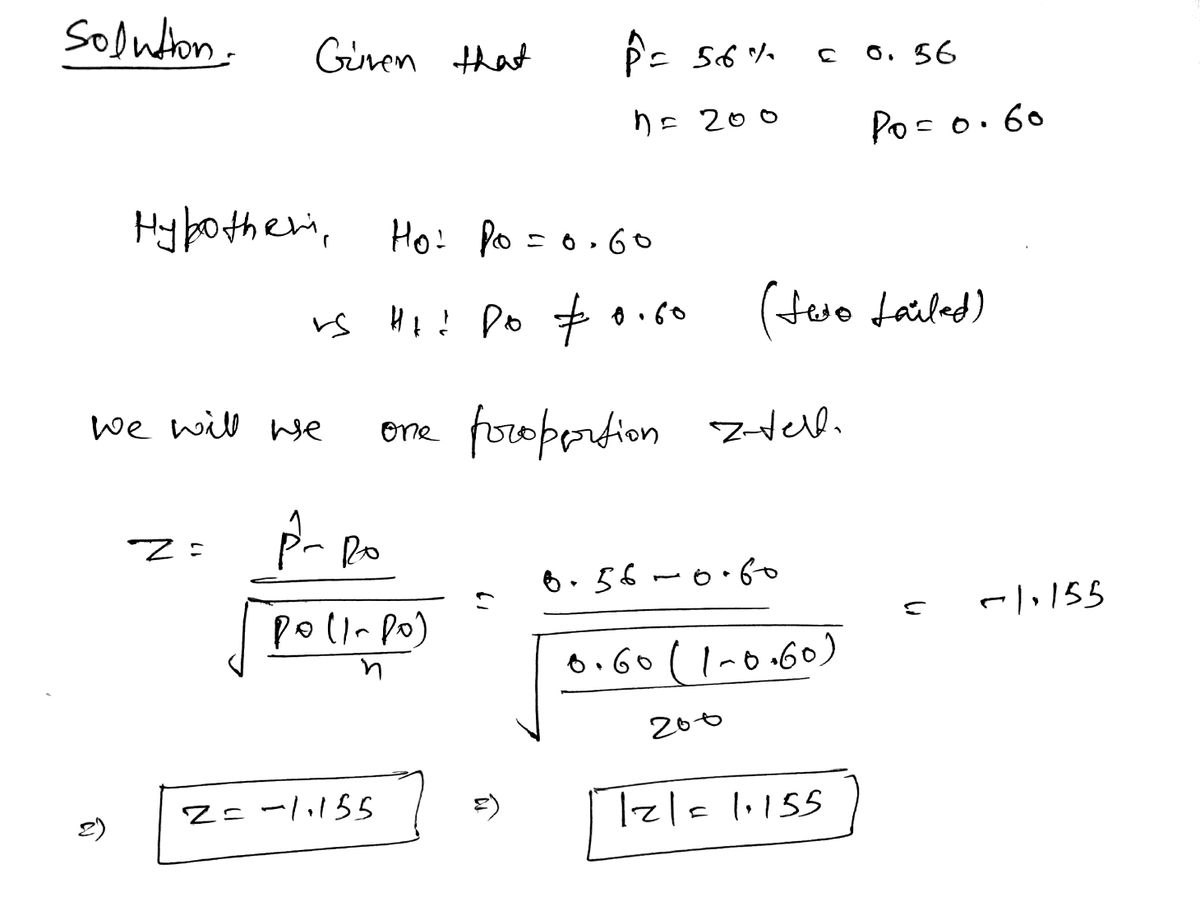 Solution. Given that p̂ = 56% = 0.56
n = 200 p0 = 0.60
Hypothesis, H0: p0 = 0.60
vs H1: p0 ≠ 0.60 (two tailed)
we will use one proportion z-test.
z = (p̂ - p0) / √(p0(1-p0)/n) = (0.56 - 0.60) / √(0.60(1-0.60)/200) = -1.155
⇒ z = -1.155 ⇒ |z| = 1.155